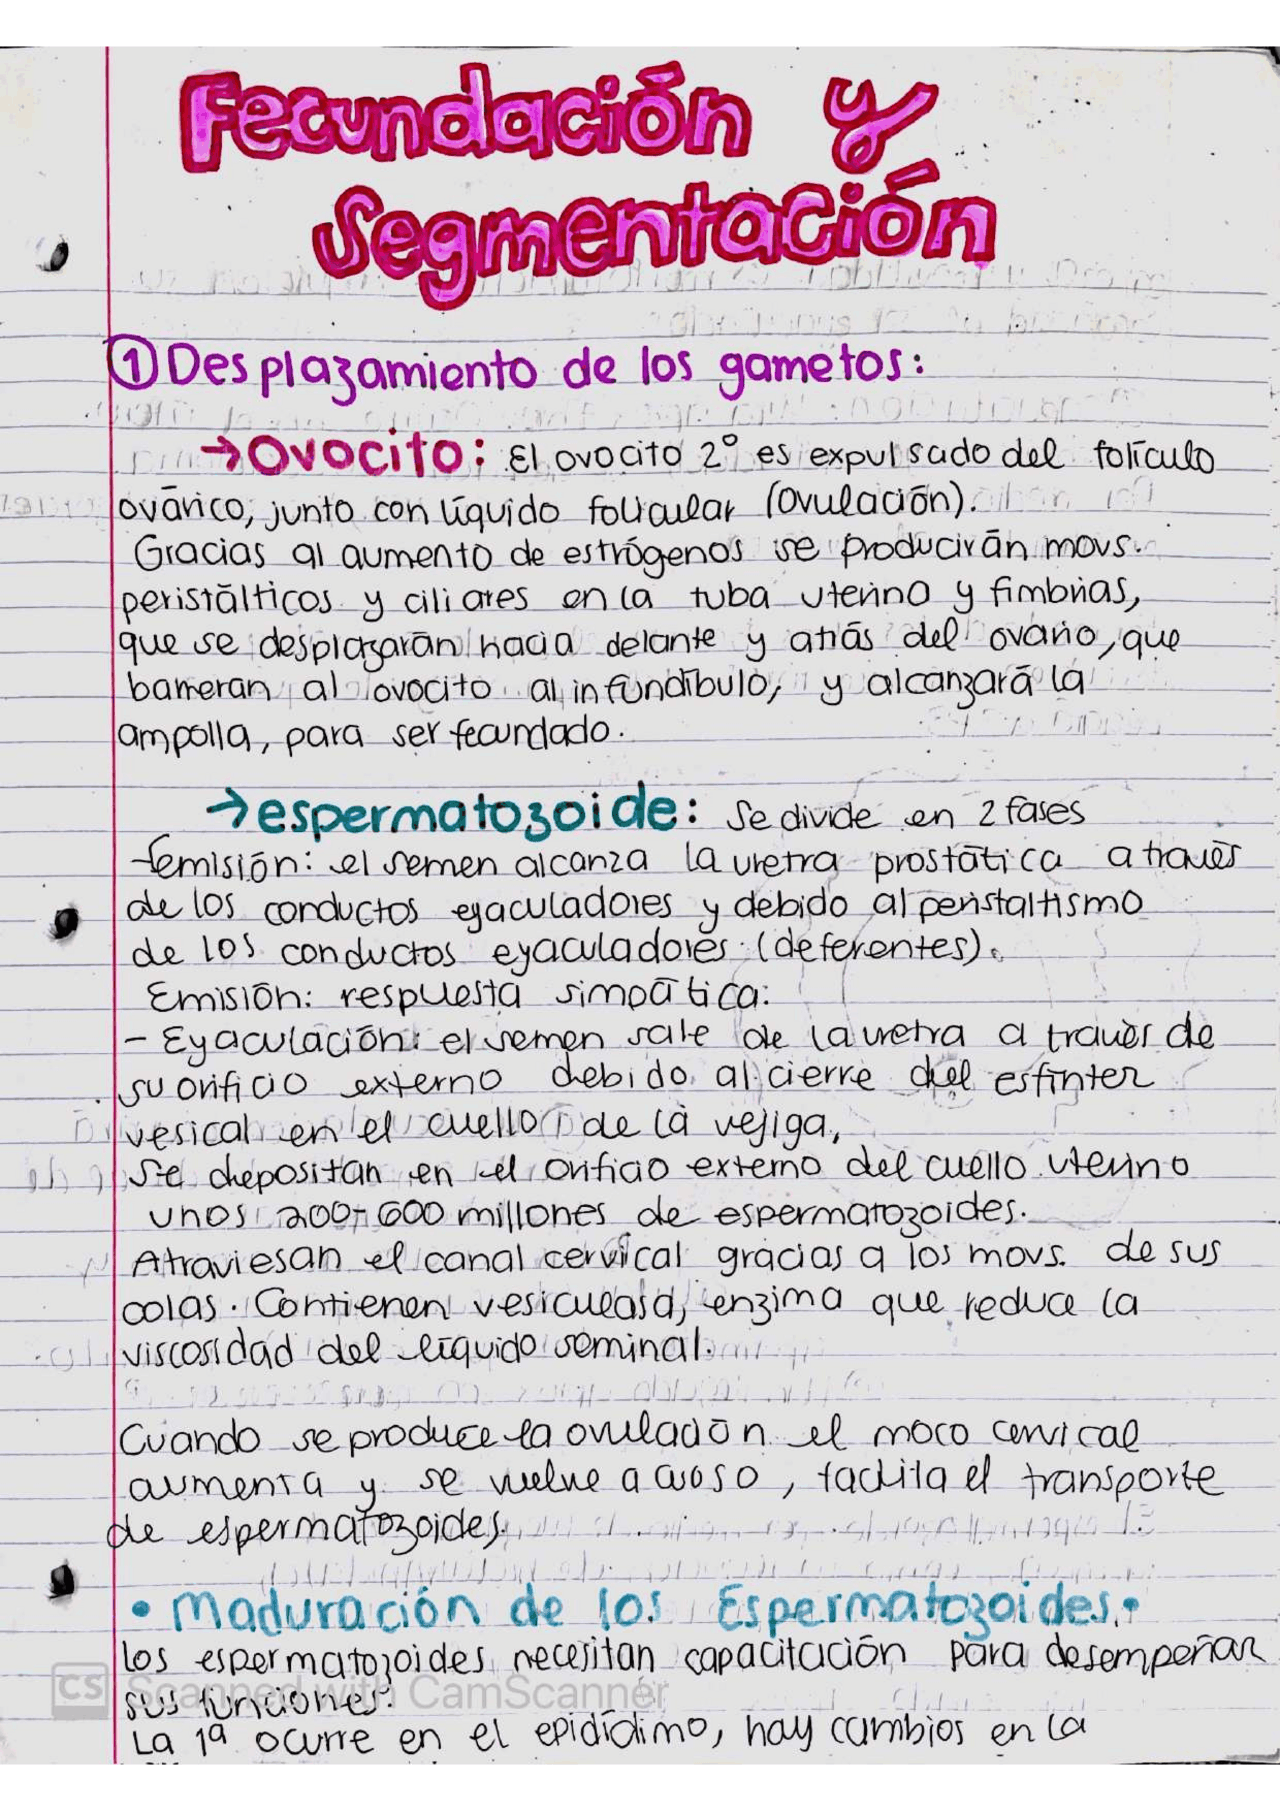 Fecundación y
Segmentación
① Desplazamiento de los gametos:
→ Ovocito: El ovocito 2º es expulsado del folículo
ovárico, junto con líquido folicular (ovulación).
Gracias al aumento de estrógenos se producirán movs.
peristálticos y ciliares en la tuba uterina y fimbrias,
que se desplazarán hacia delante y atrás del ovario, que
barreran al ovocito al infundíbulo, y alcanzará la
ampolla, para ser fecundado.
→ espermatozoide: Se divide en 2 fases
- emisión: el semen alcanza la uretra prostática a través
de los conductos eyaculadores y debido al peristaltismo
de los conductos eyaculadores (deferentes).
Emisión: respuesta simpática:
- Eyaculación: el semen sale de la uretra a través de
su orificio externo debido al cierre del esfinter
vesical en el cuello de la vejiga,
Se depositan en el orificio externo del cuello uterino
unos 200-600 millones de espermatozoides.
Atraviesan el canal cervical gracias a los movs. de sus
colas. Contienen vesiculasa, enzima que reduce la
viscosidad del líquido seminal.
Cuando se produce la ovulación el moco cervical
aumenta y se vuelve acuoso, facilita el transporte
de espermatozoides.
• Maduración de los Espermatozoides •
Los espermatozoides necesitan capacitación para desempeñar
sus funciones.
CS Scanned with CamScanner
La 1ª ocurre en el epidídimo, hay cambios en la